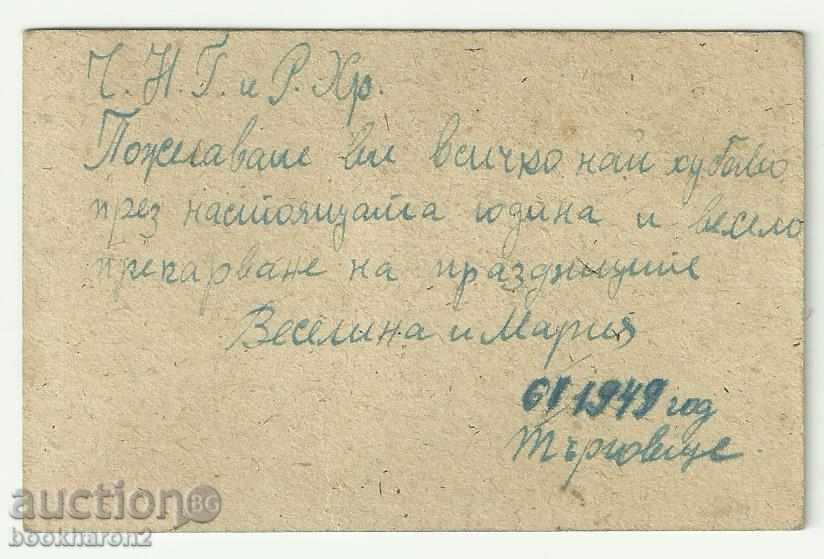 Ч.Н.Г. и Р.Хр.
Пожелаваме ви всичко най хубаво
през настоящата година и весело
прекарване на празниците
Веселина и Мария
6 I 1949 год
Търговище
auction BG
bookharon2